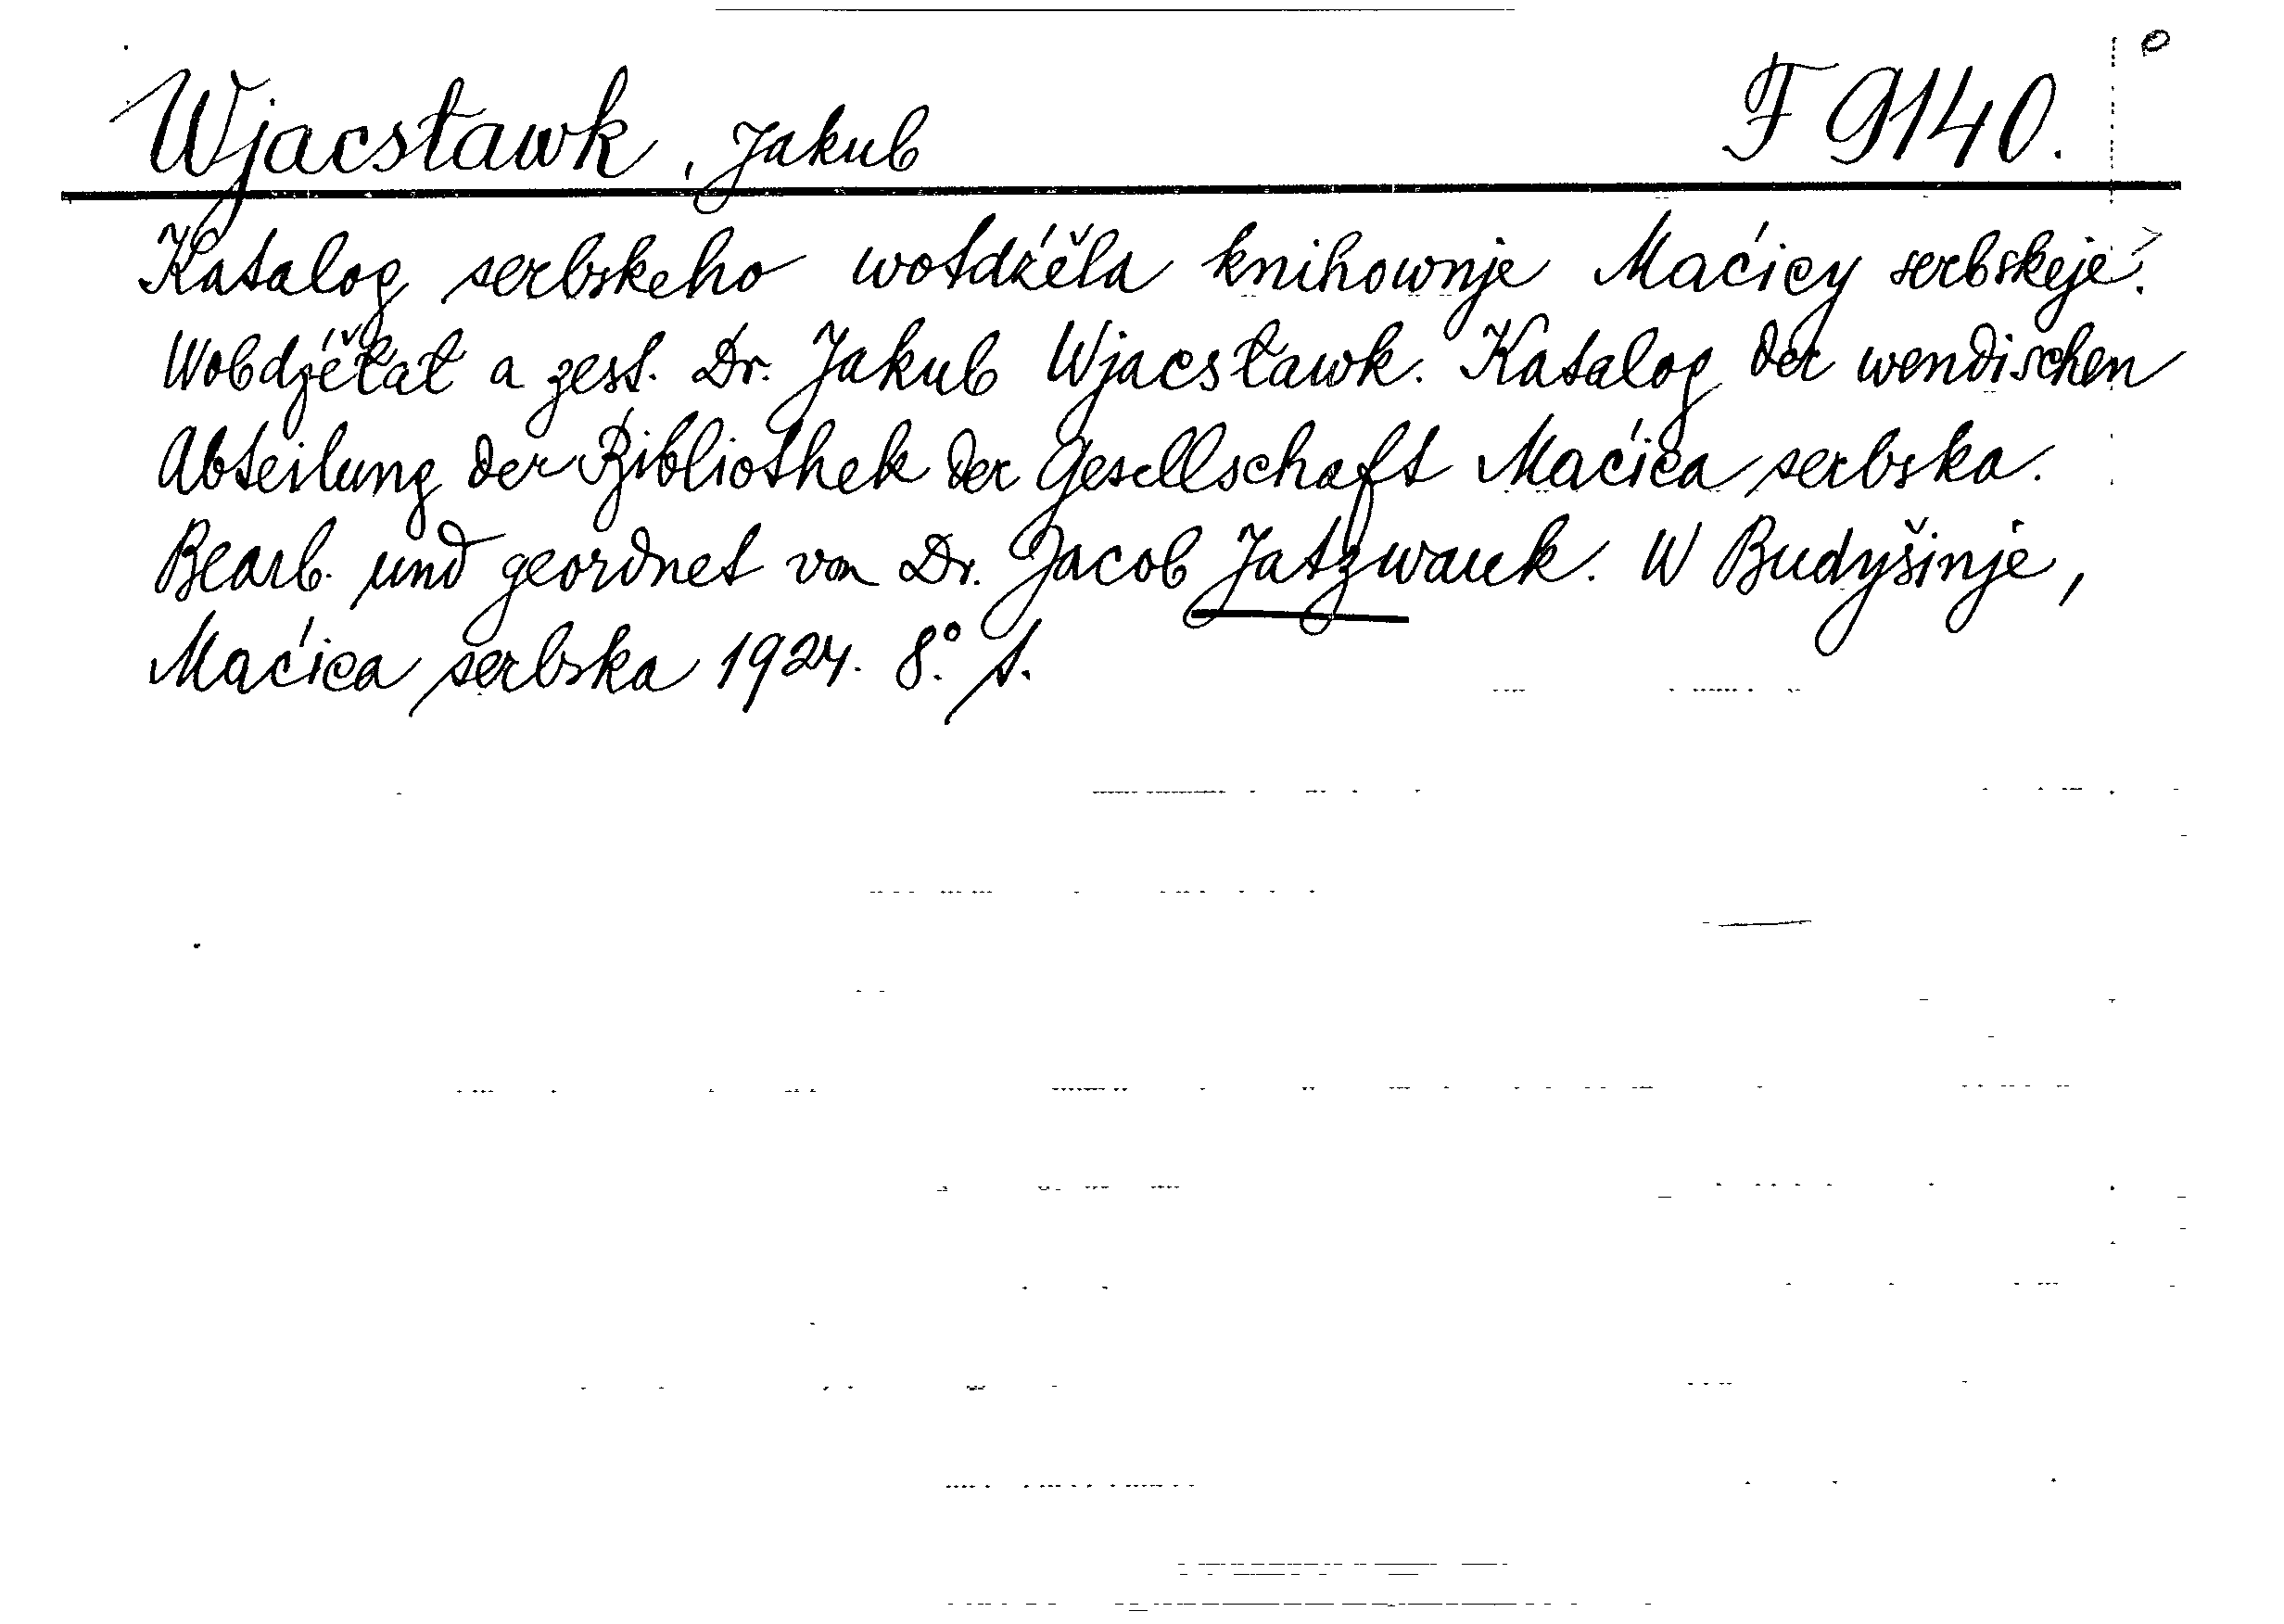 Wjacsławk, Jakub F 9140.
Katalog serbskeho wotdźěla knihownje Maćicy serbskeje.
Wobdźěłał a zest. Dr. Jakub Wjacsławk. Katalog der wendischen
Abteilung der Bibliothek der Gesellschaft Maćica serbska.
Bearb. und geordnet von Dr. Jacob Jatzwauk. W Budyšinje,
Maćica serbska 1924. 8°.